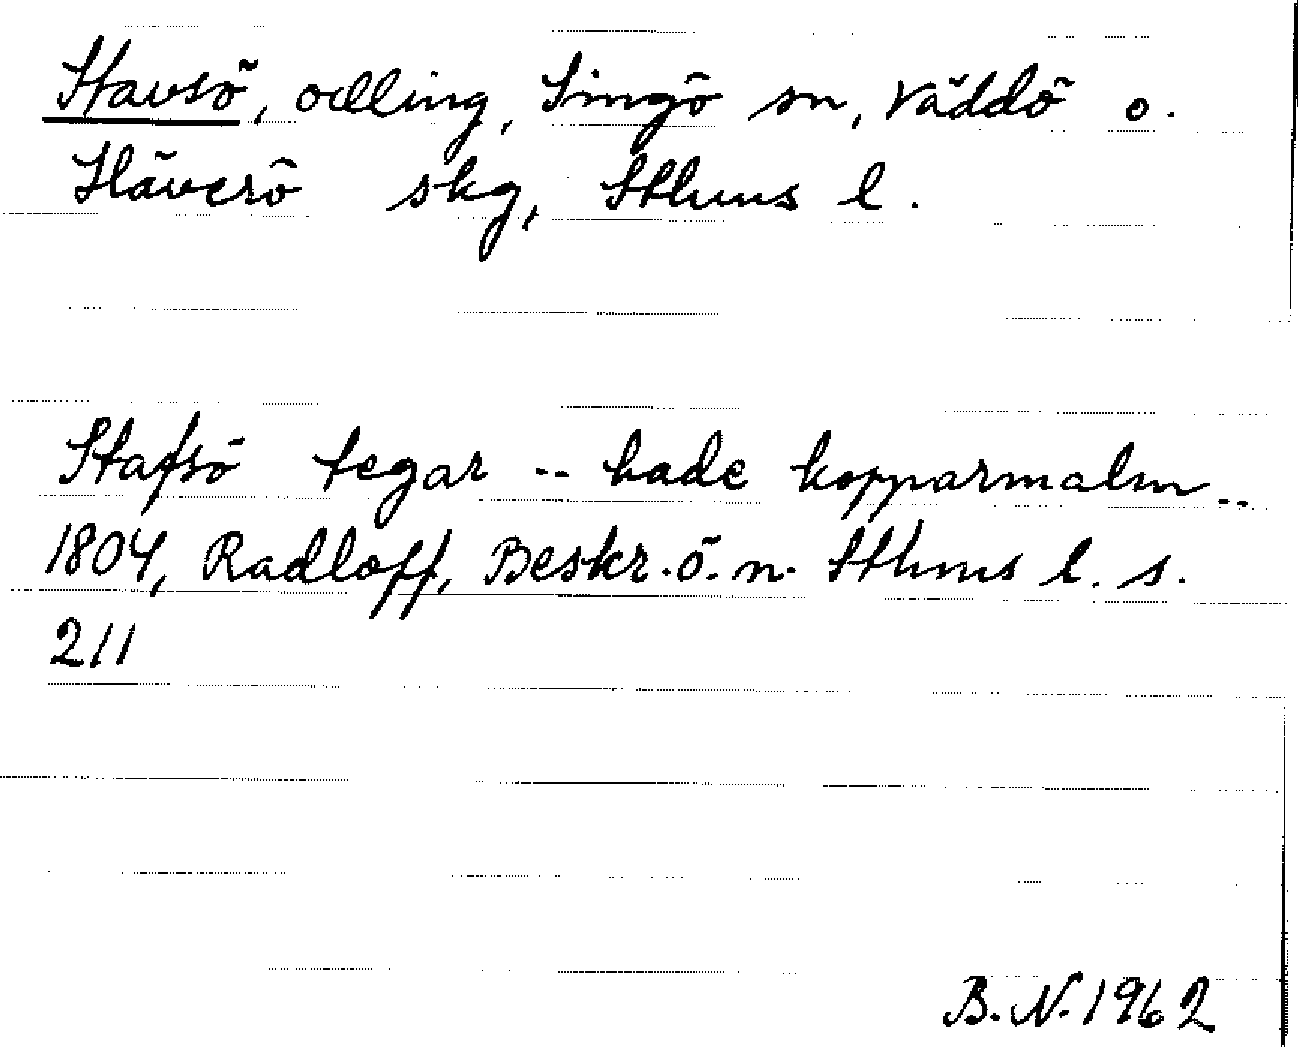 Stavsö, odling, Singö sn, Väddö o.
Häverö skg, Sthms l.
Stafsö tegar -- hade kopparmalm --
1804, Radloff, Beskr. ö. n. Sthms l. s.
211
B. N. 1962